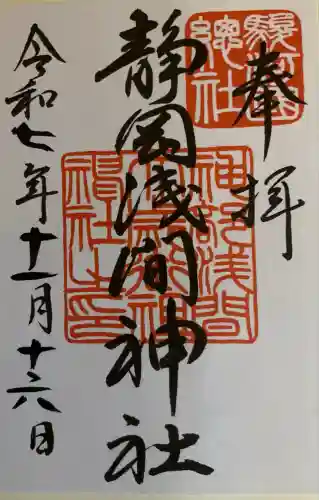 奉拝
駿河國總社
静岡浅間神社
神部浅間大歳御祖神社之印
令和七年十一月十六日